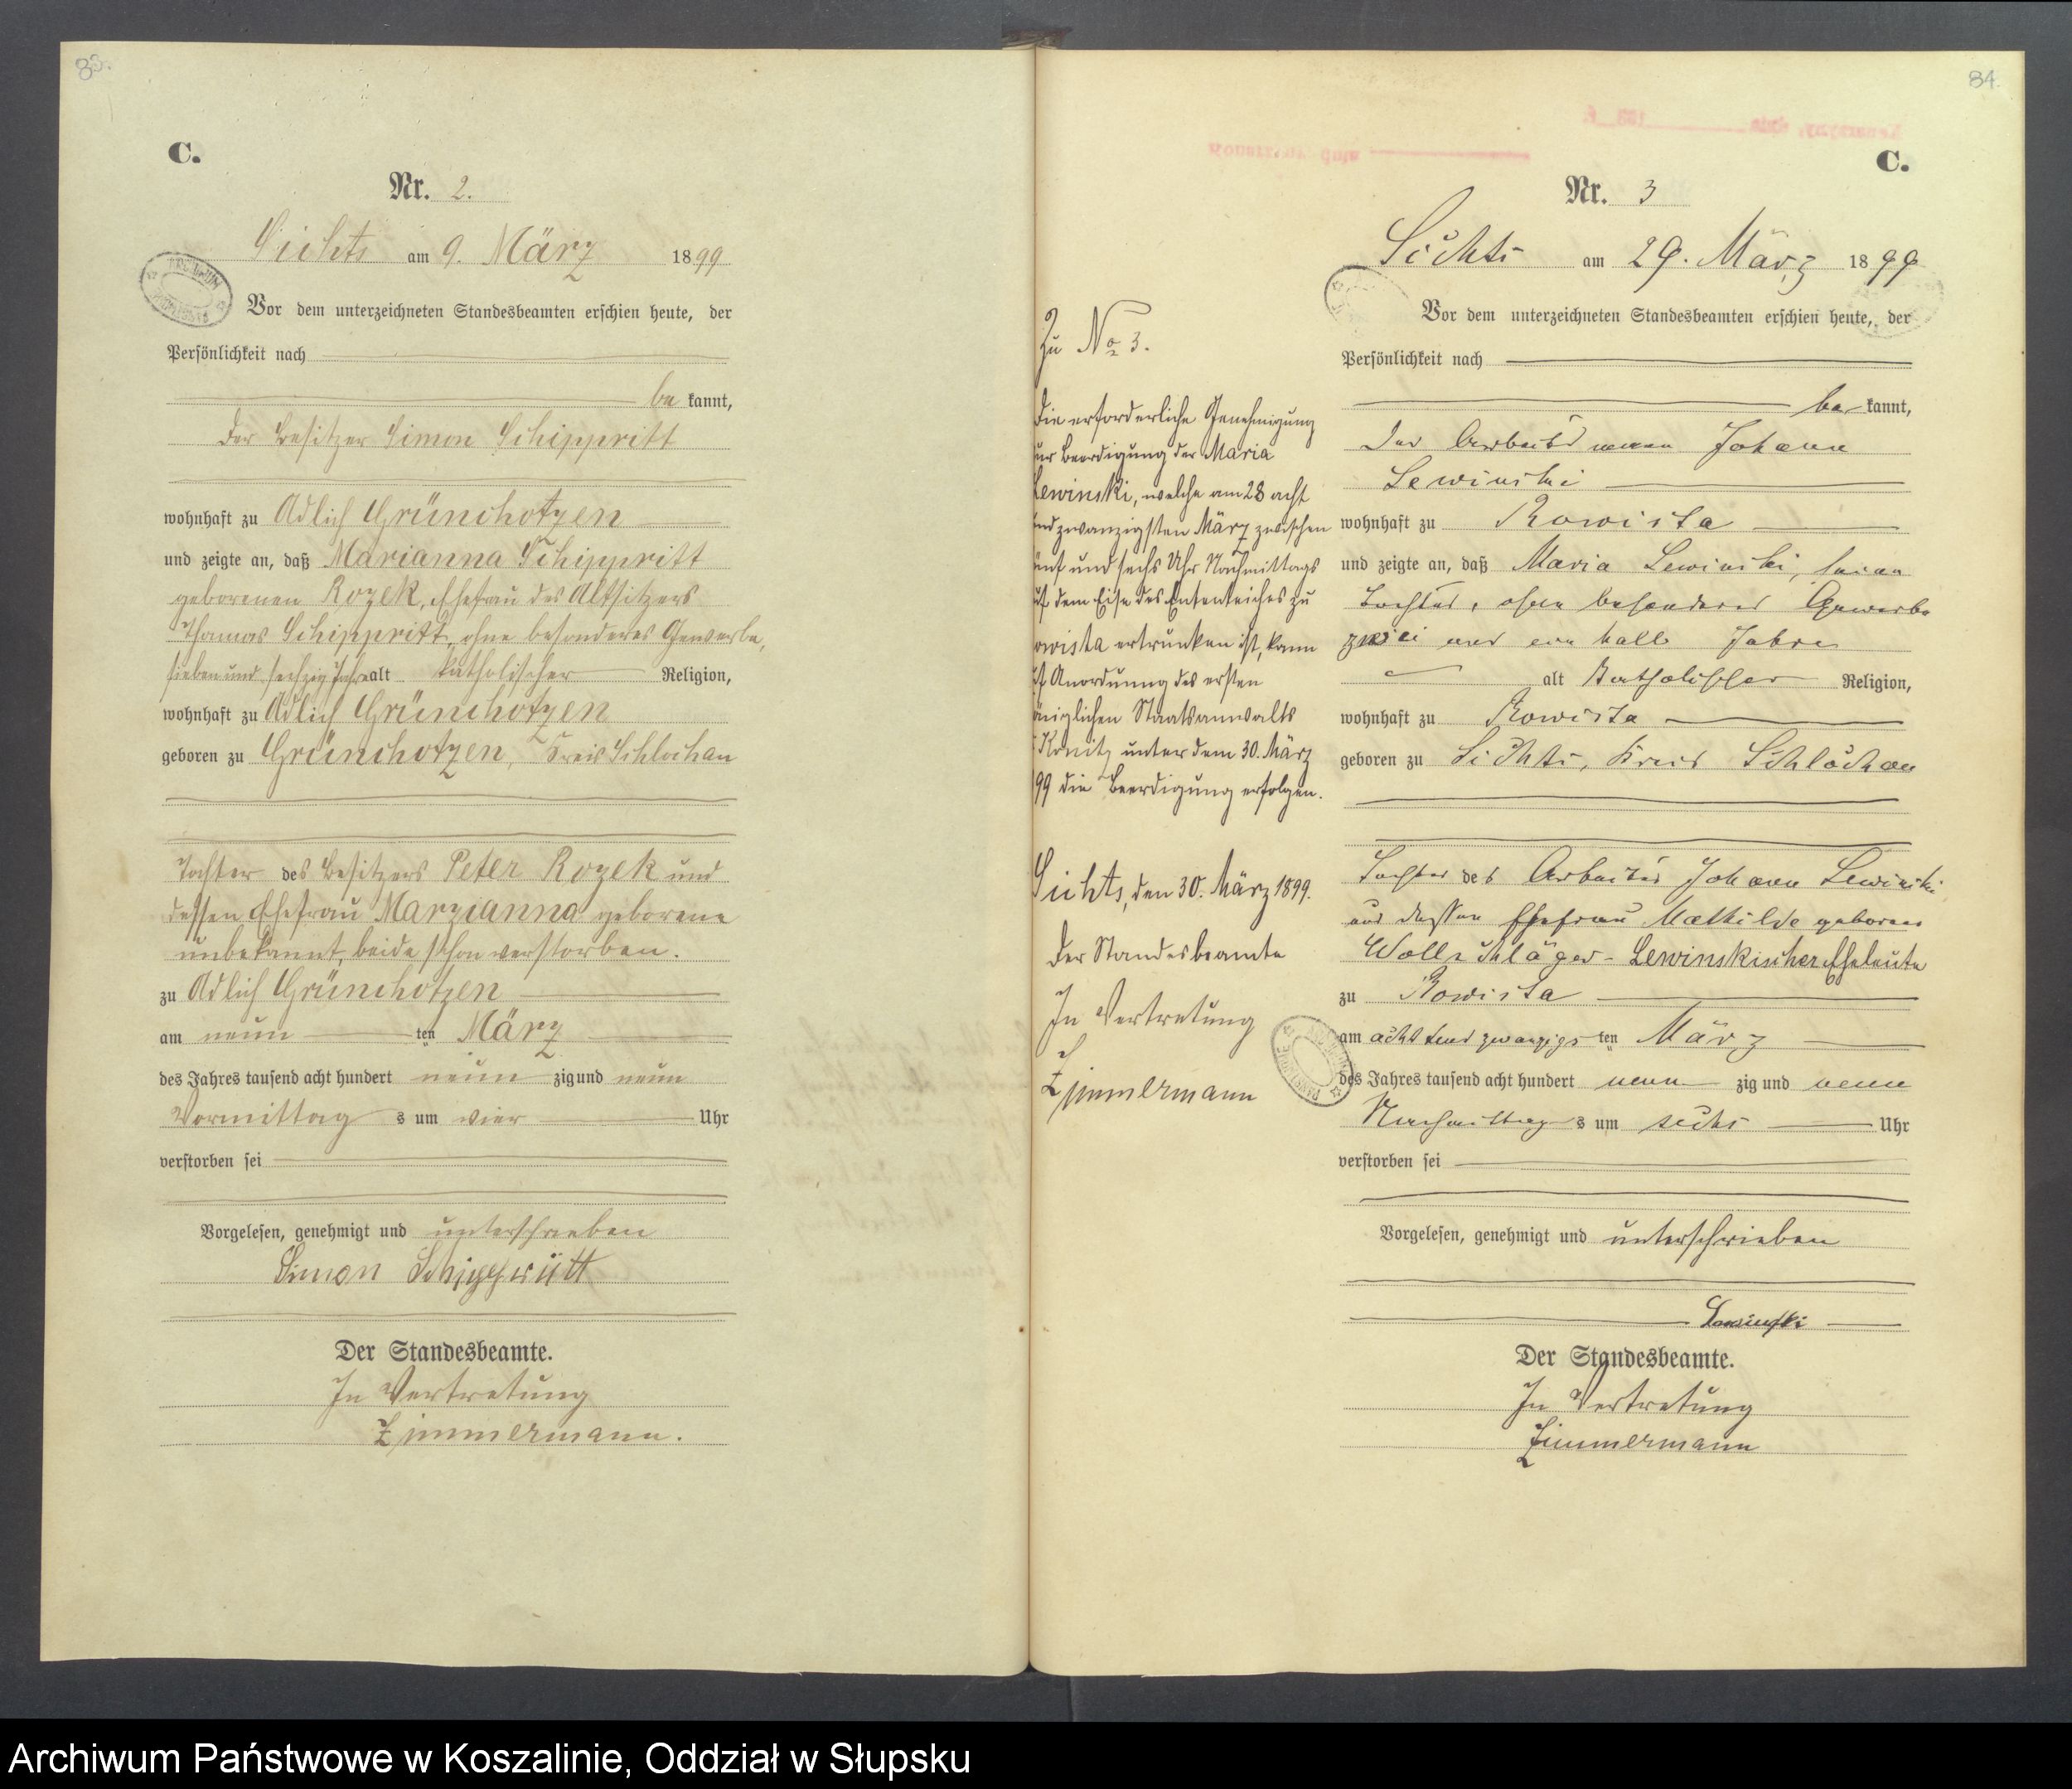 83.
C.
Nr. 2.
Sichts am 9. März 1899
Vor dem unterzeichneten Standesbeamten erschien heute, der
Persönlichkeit nach
be kannt,
der Besitzer Simon Schippritt
wohnhaft zu Adlich Grünchotzen
und zeigte an, daß Marianna Schippritt
geborenen Rozek, Ehefrau des Altsitzers
Thomas Schippritt, ohne besonderes Gewerbe,
sieben und sechzig Jahre alt katholischer Religion,
wohnhaft zu Adlich Grünchotzen
geboren zu Grünchotzen, Kreis Schlochau
Tochter des Besitzers Peter Rozek und
dessen Ehefrau Marzianna geborene
unbekannt, beide schon verstorben.
zu Adlich Grünchotzen
am neun ten März
des Jahres tausend acht hundert neun zig und neun
Vormittag s um vier Uhr
verstorben sei
Vorgelesen, genehmigt und unterschrieben
Simon Schippritt
Der Standesbeamte.
In Vertretung
Zimmermann.
84.
C.
Nr. 3
Sichts am 29. März 1899
Vor dem unterzeichneten Standesbeamten erschien heute, der
Persönlichkeit nach
be kannt,
der Arbeitsmann Johann
Lewinski
wohnhaft zu Kowista
und zeigte an, daß Maria Lewinski, seine
Tochter, ohne besonderes Gewerbe
zwei und ein halb Jahre
alt katholischer Religion,
wohnhaft zu Kowista
geboren zu Sichts, Kreis Schlochau
Tochter des Arbeiters Johann Lewinski
und dessen Ehefrau Mathilde geborene
Wollschläger - Lewinskischer Eheleute
zu Kowista
am acht und zwanzigs ten März
des Jahres tausend acht hundert neun zig und neun
Nachmittag s um sechs Uhr
verstorben sei
Vorgelesen, genehmigt und unterschrieben
Lewinski
Der Standesbeamte.
In Vertretung
Zimmermann
Zu No 3.
Die erforderliche Genehmigung
zur Beerdigung der Maria
Lewinski, welche am 28 acht
und zwanzigsten März zwischen
fünf und sechs Uhr Nachmittags
auf dem Eise des Ententeiches zu
Kowista ertrunken ist, kann
auf Anordnung des ersten
Königlichen Staatsanwalts
Konitz unter dem 30. März
99 die Beerdigung erfolgen.
Sichts, den 30. März 1899.
Der Standesbeamte
In Vertretung
Zimmermann
Archiwum Państwowe w Koszalinie, Oddział w Słupsku